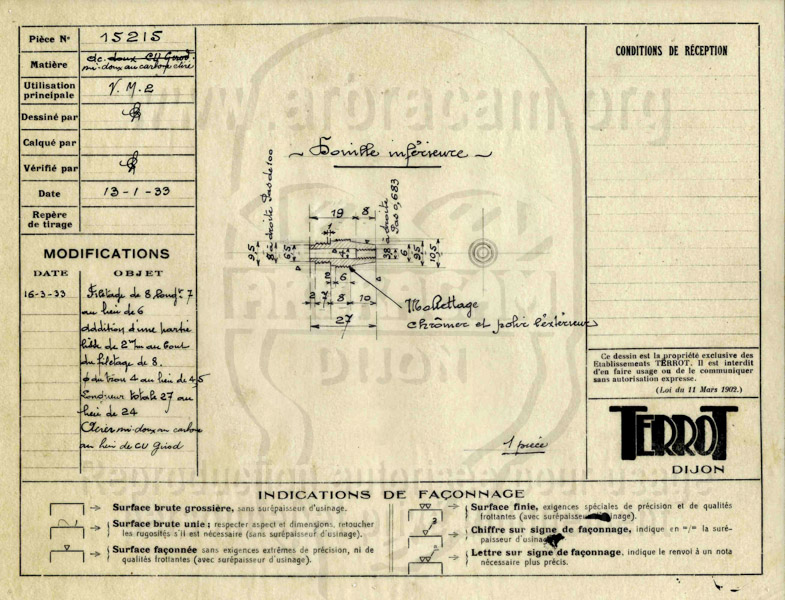 Pièce N° 15215
Matière dc. doux CU Girod.
mi-doux au carbone étiré
Utilisation principale V.M.2
Dessiné par
Calqué par
Vérifié par
Date 13-1-33
Repère de tirage
MODIFICATIONS
DATE OBJET
16-3-33 Filetage de 8 longr 7
au lieu de 6
addition d'une partie
lisse de 2m/m au bout
du filetage de 8.
φ du trou 4 au lieu de 4,5
Longueur totale 27 au
lieu de 24
Acier mi-doux au carbone
au lieu de CU Girod
www.arbracam.org
~ Douille inférieure ~
à droite Pas de 100
à droite
Pas 0,683
19 8
1
9,5 8 6,5 4 38 6 9,5 10,5
2 6
2 7 8 10
27
Molettage
chrômer et polir l'extérieur
1 pièce
DIJON
CONDITIONS DE RÉCEPTION
Ce dessin est la propriété exclusive des
Etablissements TERROT. Il est interdit
d'en faire usage ou de le communiquer
sans autorisation expresse.
(Loi du 11 Mars 1902.)
TERROT
DIJON
Reproduction autorisée pour usage
INDICATIONS DE FAÇONNAGE
Surface brute grossière, sans surépaisseur d'usinage.
Surface brute unie; respecter aspect et dimensions, retoucher
les rugosités s'il est nécessaire (sans surépaisseur d'usinage).
Surface façonnée sans exigences extrêmes de précision, ni de
qualités frottantes (avec surépaisseur d'usinage).
Surface finie, exigences spéciales de précision et de qualités
frottantes (avec surépaisseur d'usinage).
3
Chiffre sur signe de façonnage, indique en m/m la suré-
paisseur d'usinage.
a
Lettre sur signe de façonnage, indique le renvoi à un nota
nécessaire plus précis.